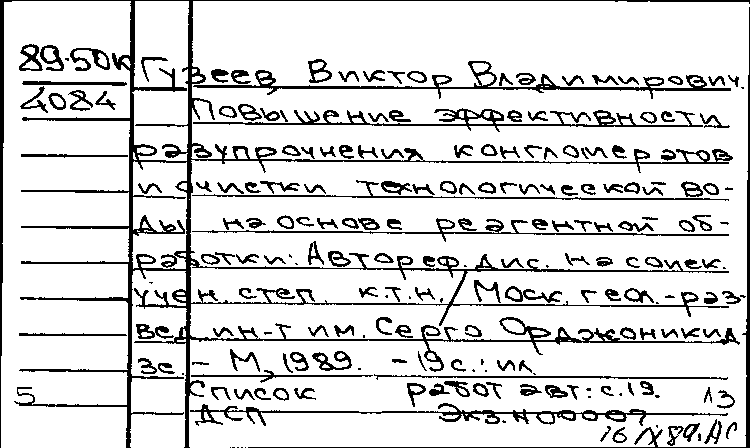 89-50к Гузеев, Виктор Владимирович.
4084 Повышение эффективности
разупрочнения конгломератов
и очистки технологической во-
ды на основе реагентной об-
работки: Автореф. дис. на соиск.
учен. степ. к.т.н. / Моск. геол.-раз-
вед. ин-т им. Серго Орджоникид-
зе. – М., 1989. – 19 с.: ил
Список работ авт.: с.19.
5 ДСП Экз. N00007